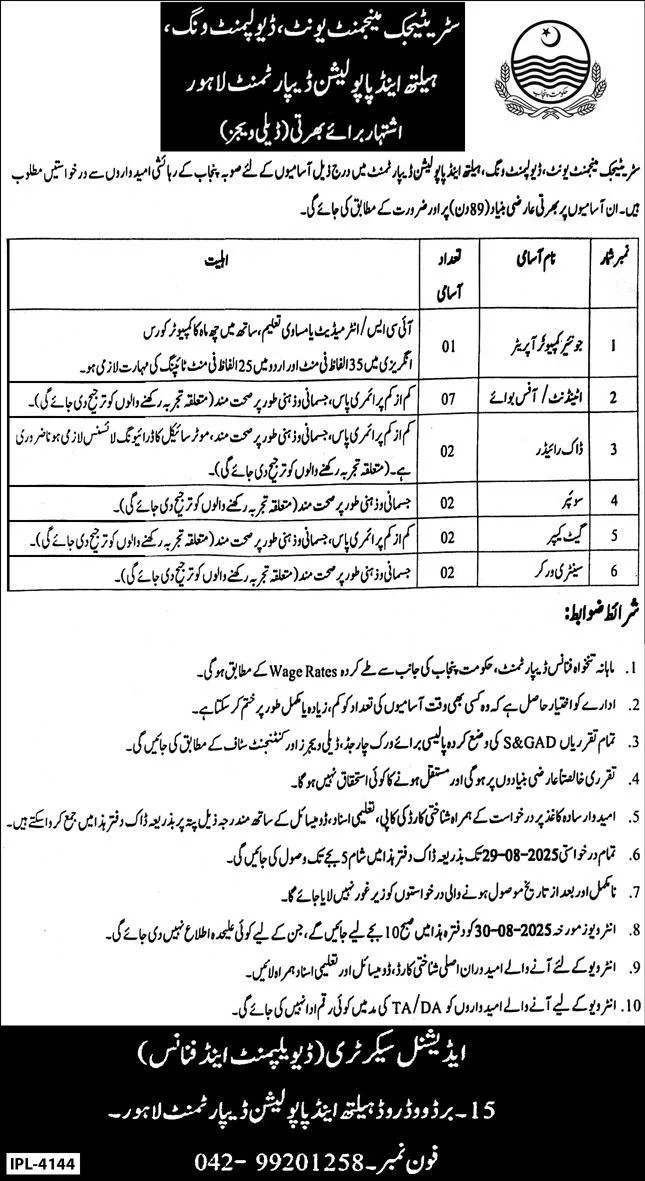 سٹریٹیجک مینجمنٹ یونٹ، ڈیولپمنٹ ونگ،
ہیلتھ اینڈ پاپولیشن ڈیپارٹمنٹ لاہور
اشتہار برائے بھرتی (ڈیلی ویجز)
حکومت پنجاب
سٹریٹیجک مینجمنٹ یونٹ، ڈیولپمنٹ ونگ، ہیلتھ اینڈ پاپولیشن ڈیپارٹمنٹ میں درج ذیل آسامیوں کے لئے صوبہ پنجاب کے رہائشی امیدواروں سے درخواستیں مطلوب
ہیں۔ ان آسامیوں پر بھرتی عارضی بنیاد (89 دن) پر اور ضرورت کے مطابق کی جائے گی۔
نمبر شمار نام آسامی تعداد آسامی اہلیت
1 جونئیر کمپیوٹر آپریٹر 01 آئی سی ایس/انٹرمیڈیٹ یا مساوی تعلیم، ساتھ میں چھ ماہ کا کمپیوٹر کورس
انگریزی میں 35 الفاظ فی منٹ اور اردو میں 25 الفاظ فی منٹ ٹائپنگ کی مہارت لازمی ہو۔
2 اٹینڈنٹ/آفس بوائے 07 کم از کم پرائمری پاس، جسمانی و ذہنی طور پر صحت مند (متعلقہ تجربہ رکھنے والوں کو ترجیح دی جائے گی)۔
3 ڈاک رائیڈر 02 کم از کم پرائمری پاس، جسمانی و ذہنی طور پر صحت مند، موٹر سائیکل کا ڈرائیونگ لائسنس لازمی ہونا ضروری
ہے۔ (متعلقہ تجربہ رکھنے والوں کو ترجیح دی جائے گی)۔
4 سوئپر 02 جسمانی و ذہنی طور پر صحت مند (متعلقہ تجربہ رکھنے والوں کو ترجیح دی جائے گی)۔
5 گیٹ کیپر 02 کم از کم پرائمری پاس، جسمانی و ذہنی طور پر صحت مند (متعلقہ تجربہ رکھنے والوں کو ترجیح دی جائے گی)۔
6 سینٹری ورکر 02 جسمانی و ذہنی طور پر صحت مند (متعلقہ تجربہ رکھنے والوں کو ترجیح دی جائے گی)۔
شرائط ضوابط:
1. ماہانہ تنخواہ فنانس ڈیپارٹمنٹ، حکومت پنجاب کی جانب سے طے کردہ Wage Rates کے مطابق ہوگی۔
2. ادارے کو اختیار حاصل ہے کہ وہ کسی بھی وقت آسامیوں کی تعداد کو کم، زیادہ یا مکمل طور پر ختم کر سکتا ہے۔
3. تمام تقرریاں S&GAD کی وضع کردہ پالیسی برائے ورک چارجڈ، ڈیلی ویجرز اور کنٹنجنٹ سٹاف کے مطابق کی جائیں گی۔
4. تقرری خالصتاً عارضی بنیادوں پر ہوگی اور مستقل ہونے کا کوئی استحقاق نہیں ہوگا۔
5. امیدوار سادہ کاغذ پر درخواست کے ہمراہ شناختی کارڈ کی کاپی، تعلیمی اسناد، ڈومیسائل کے ساتھ مندرجہ ذیل پتہ پر بذریعہ ڈاک دفتر ہذا میں جمع کروا سکتے ہیں۔
6. تمام درخواستیں 29-08-2025 تک بذریعہ ڈاک دفتر ہذا میں شام 5 بجے تک وصول کی جائیں گی۔
7. نامکمل اور بعد از تاریخ موصول ہونے والی درخواستوں کو زیر غور نہیں لایا جائے گا۔
8. انٹرویوز مورخہ 30-08-2025 کو دفتر ہذا میں صبح 10 بجے لیے جائیں گے، جن کے لیے کوئی علیحدہ اطلاع نہیں دی جائے گی۔
9. انٹرویو کے لئے آنے والے امیدواران اصلی شناختی کارڈ، ڈومیسائل اور تعلیمی اسناد ہمراہ لائیں۔
10. انٹرویو کے لیے آنے والے امیدواروں کو TA/DA کی مد میں کوئی رقم ادا نہیں کی جائے گی۔
ایڈیشنل سیکرٹری (ڈیولپمنٹ اینڈ فنانس)
15۔ برڈووڈ روڈ ہیلتھ اینڈ پاپولیشن ڈیپارٹمنٹ لاہور۔
فون نمبر۔ 042- 99201258
IPL-4144